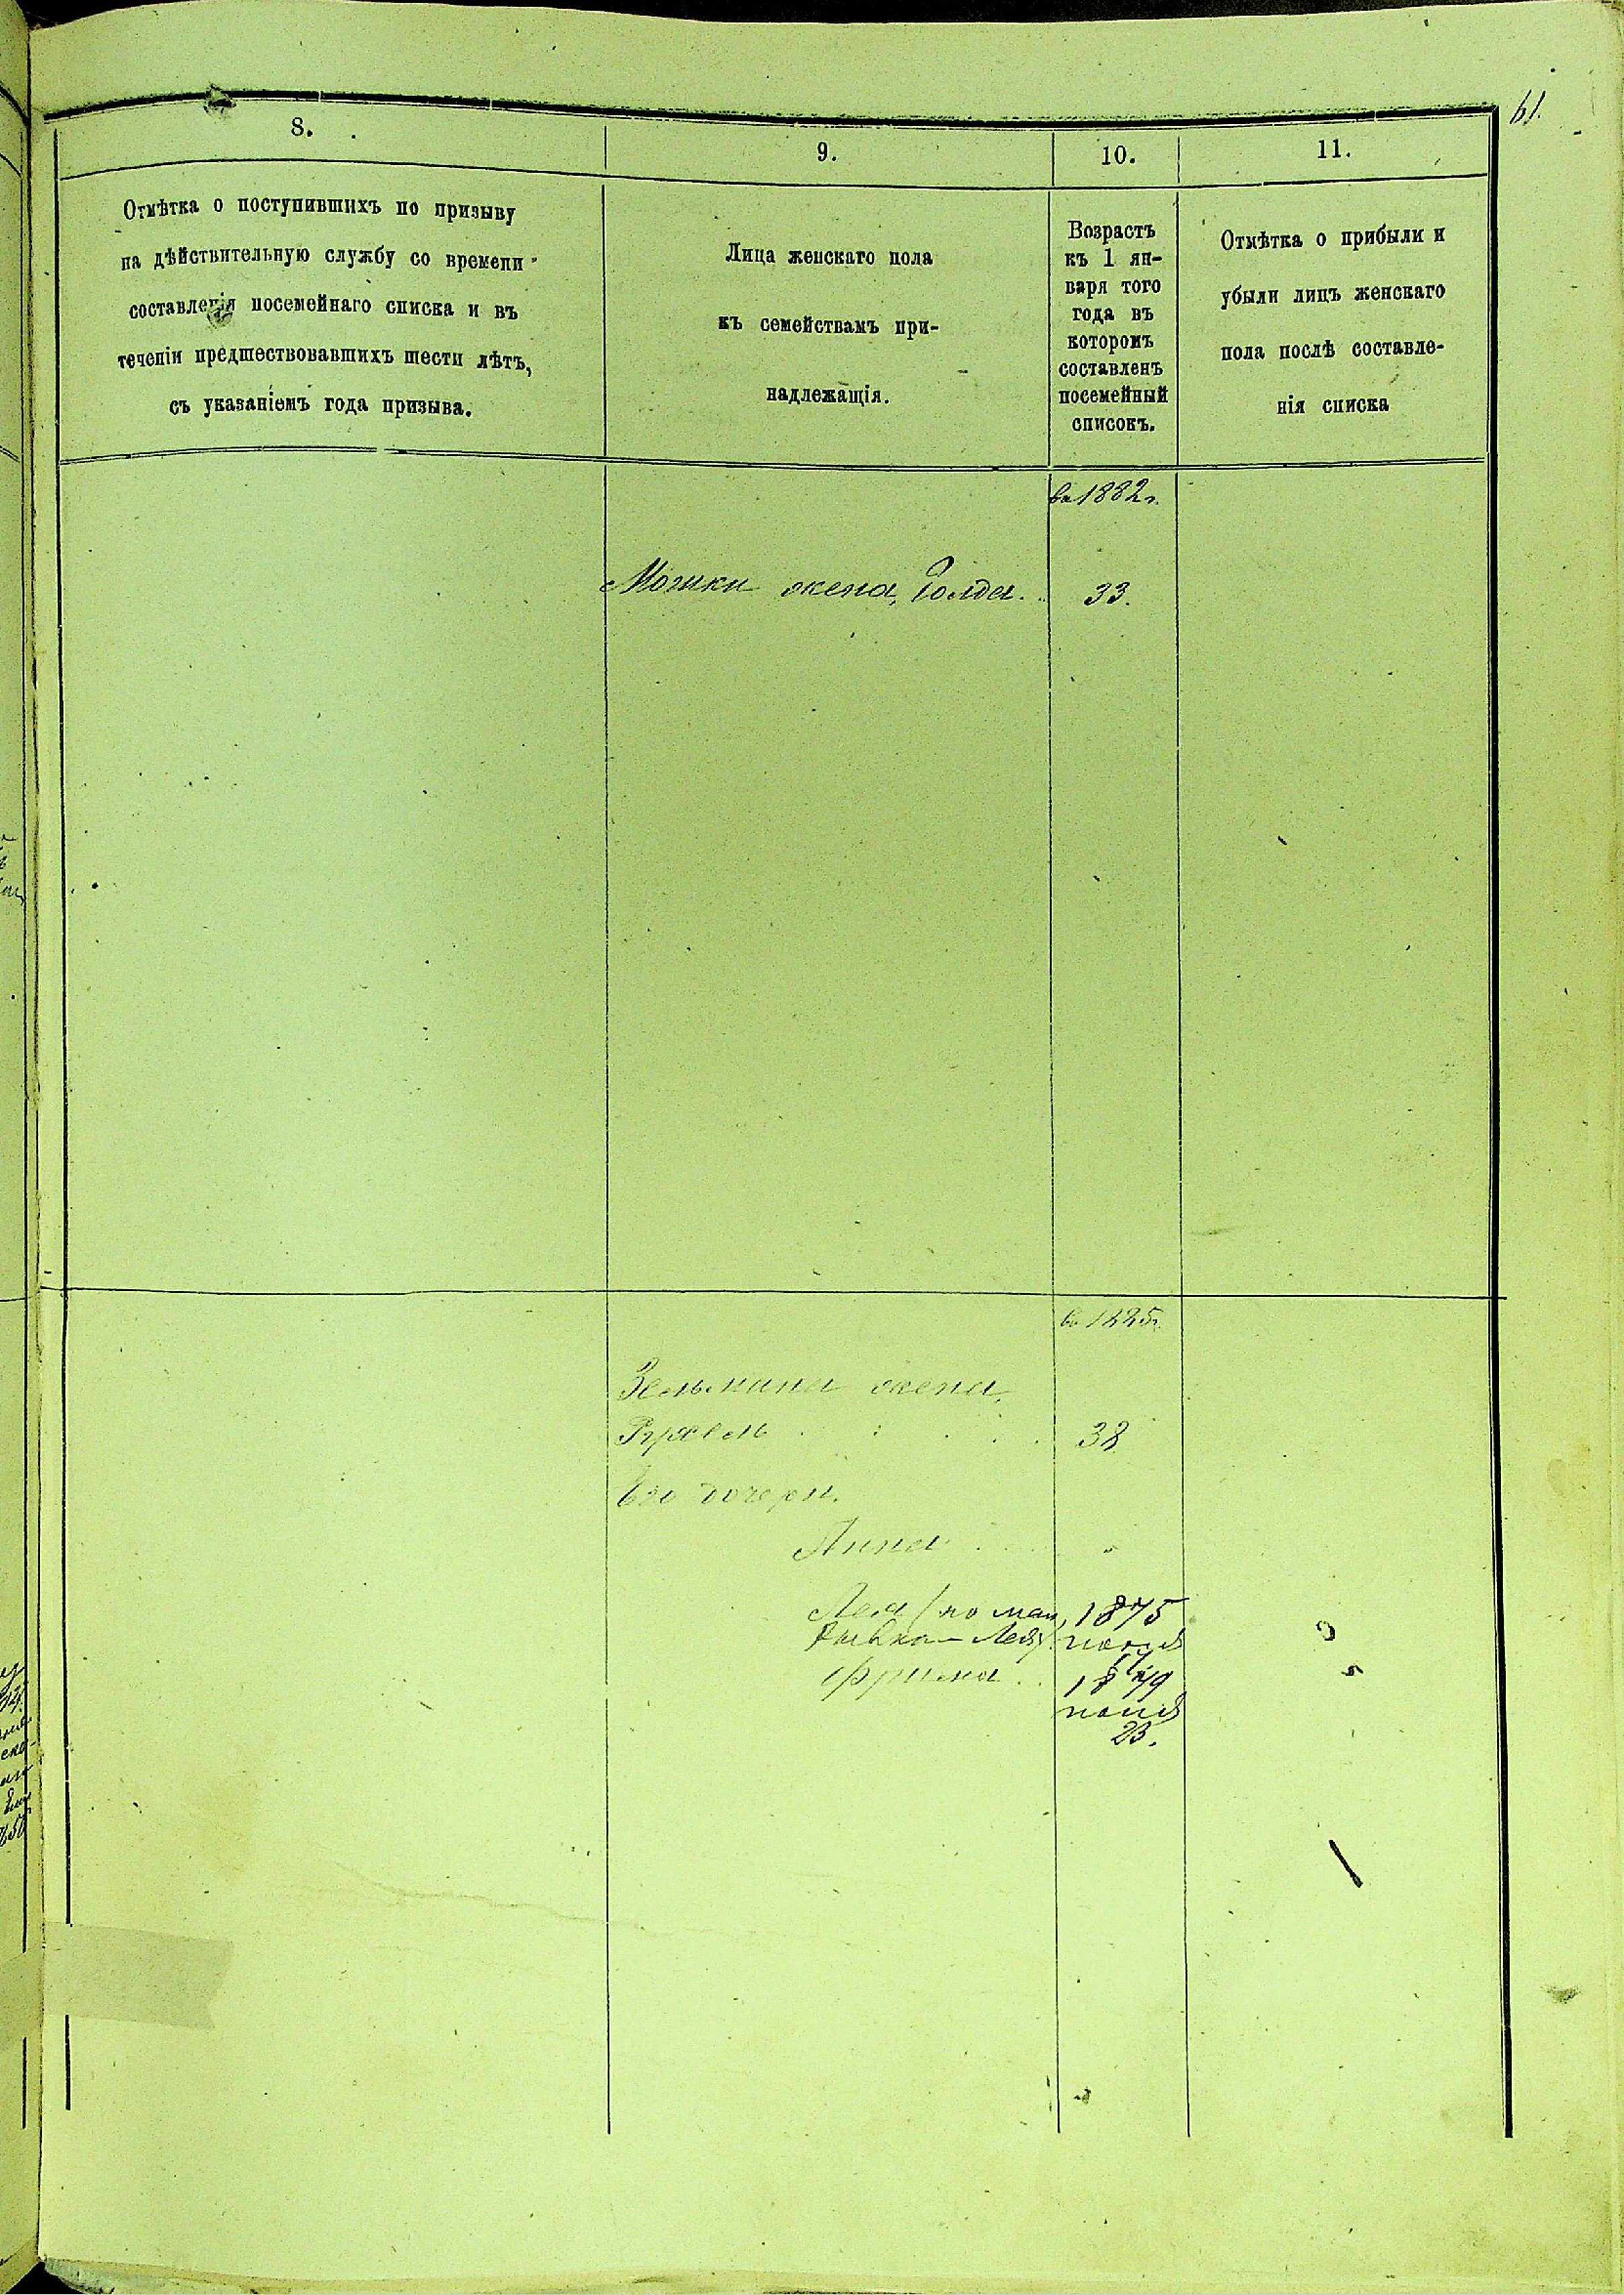 61.
8.
9.
10.
11.
Отмѣтка о поступившихъ по призыву
на дѣйствительную службу со времени
составленія посемейнаго списка и въ
теченіи предшествовавшихъ шести лѣтъ,
съ указаніемъ года призыва.
Лица женскаго пола
къ семействамъ при-
надлежащія.
Возрастъ
къ 1 ян-
варя того
года въ
которомъ
составленъ
посемейный
списокъ.
Отмѣтка о прибыли и
убыли лицъ женскаго
пола послѣ составле-
нія списка
въ 1882 г.
Мошки жена, Голда. 33.
въ 1885 г.
Зельмана жена,
Рухель 38
Его дочери.
Анна "
Лея 1875
Рывка-Лея)
Фрима 1879
23.